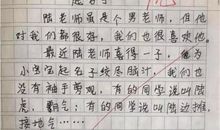 陆老师虽是个男老师，但他
对我们都很好，我们也很喜欢他。
最近陆老师喜得一子，他为
小宝宝起名子绞尽脑汁，我们也
没有袖手旁观，有的同学说叫陆
虎，霸气；有的同学说叫陆桩，
接地气……